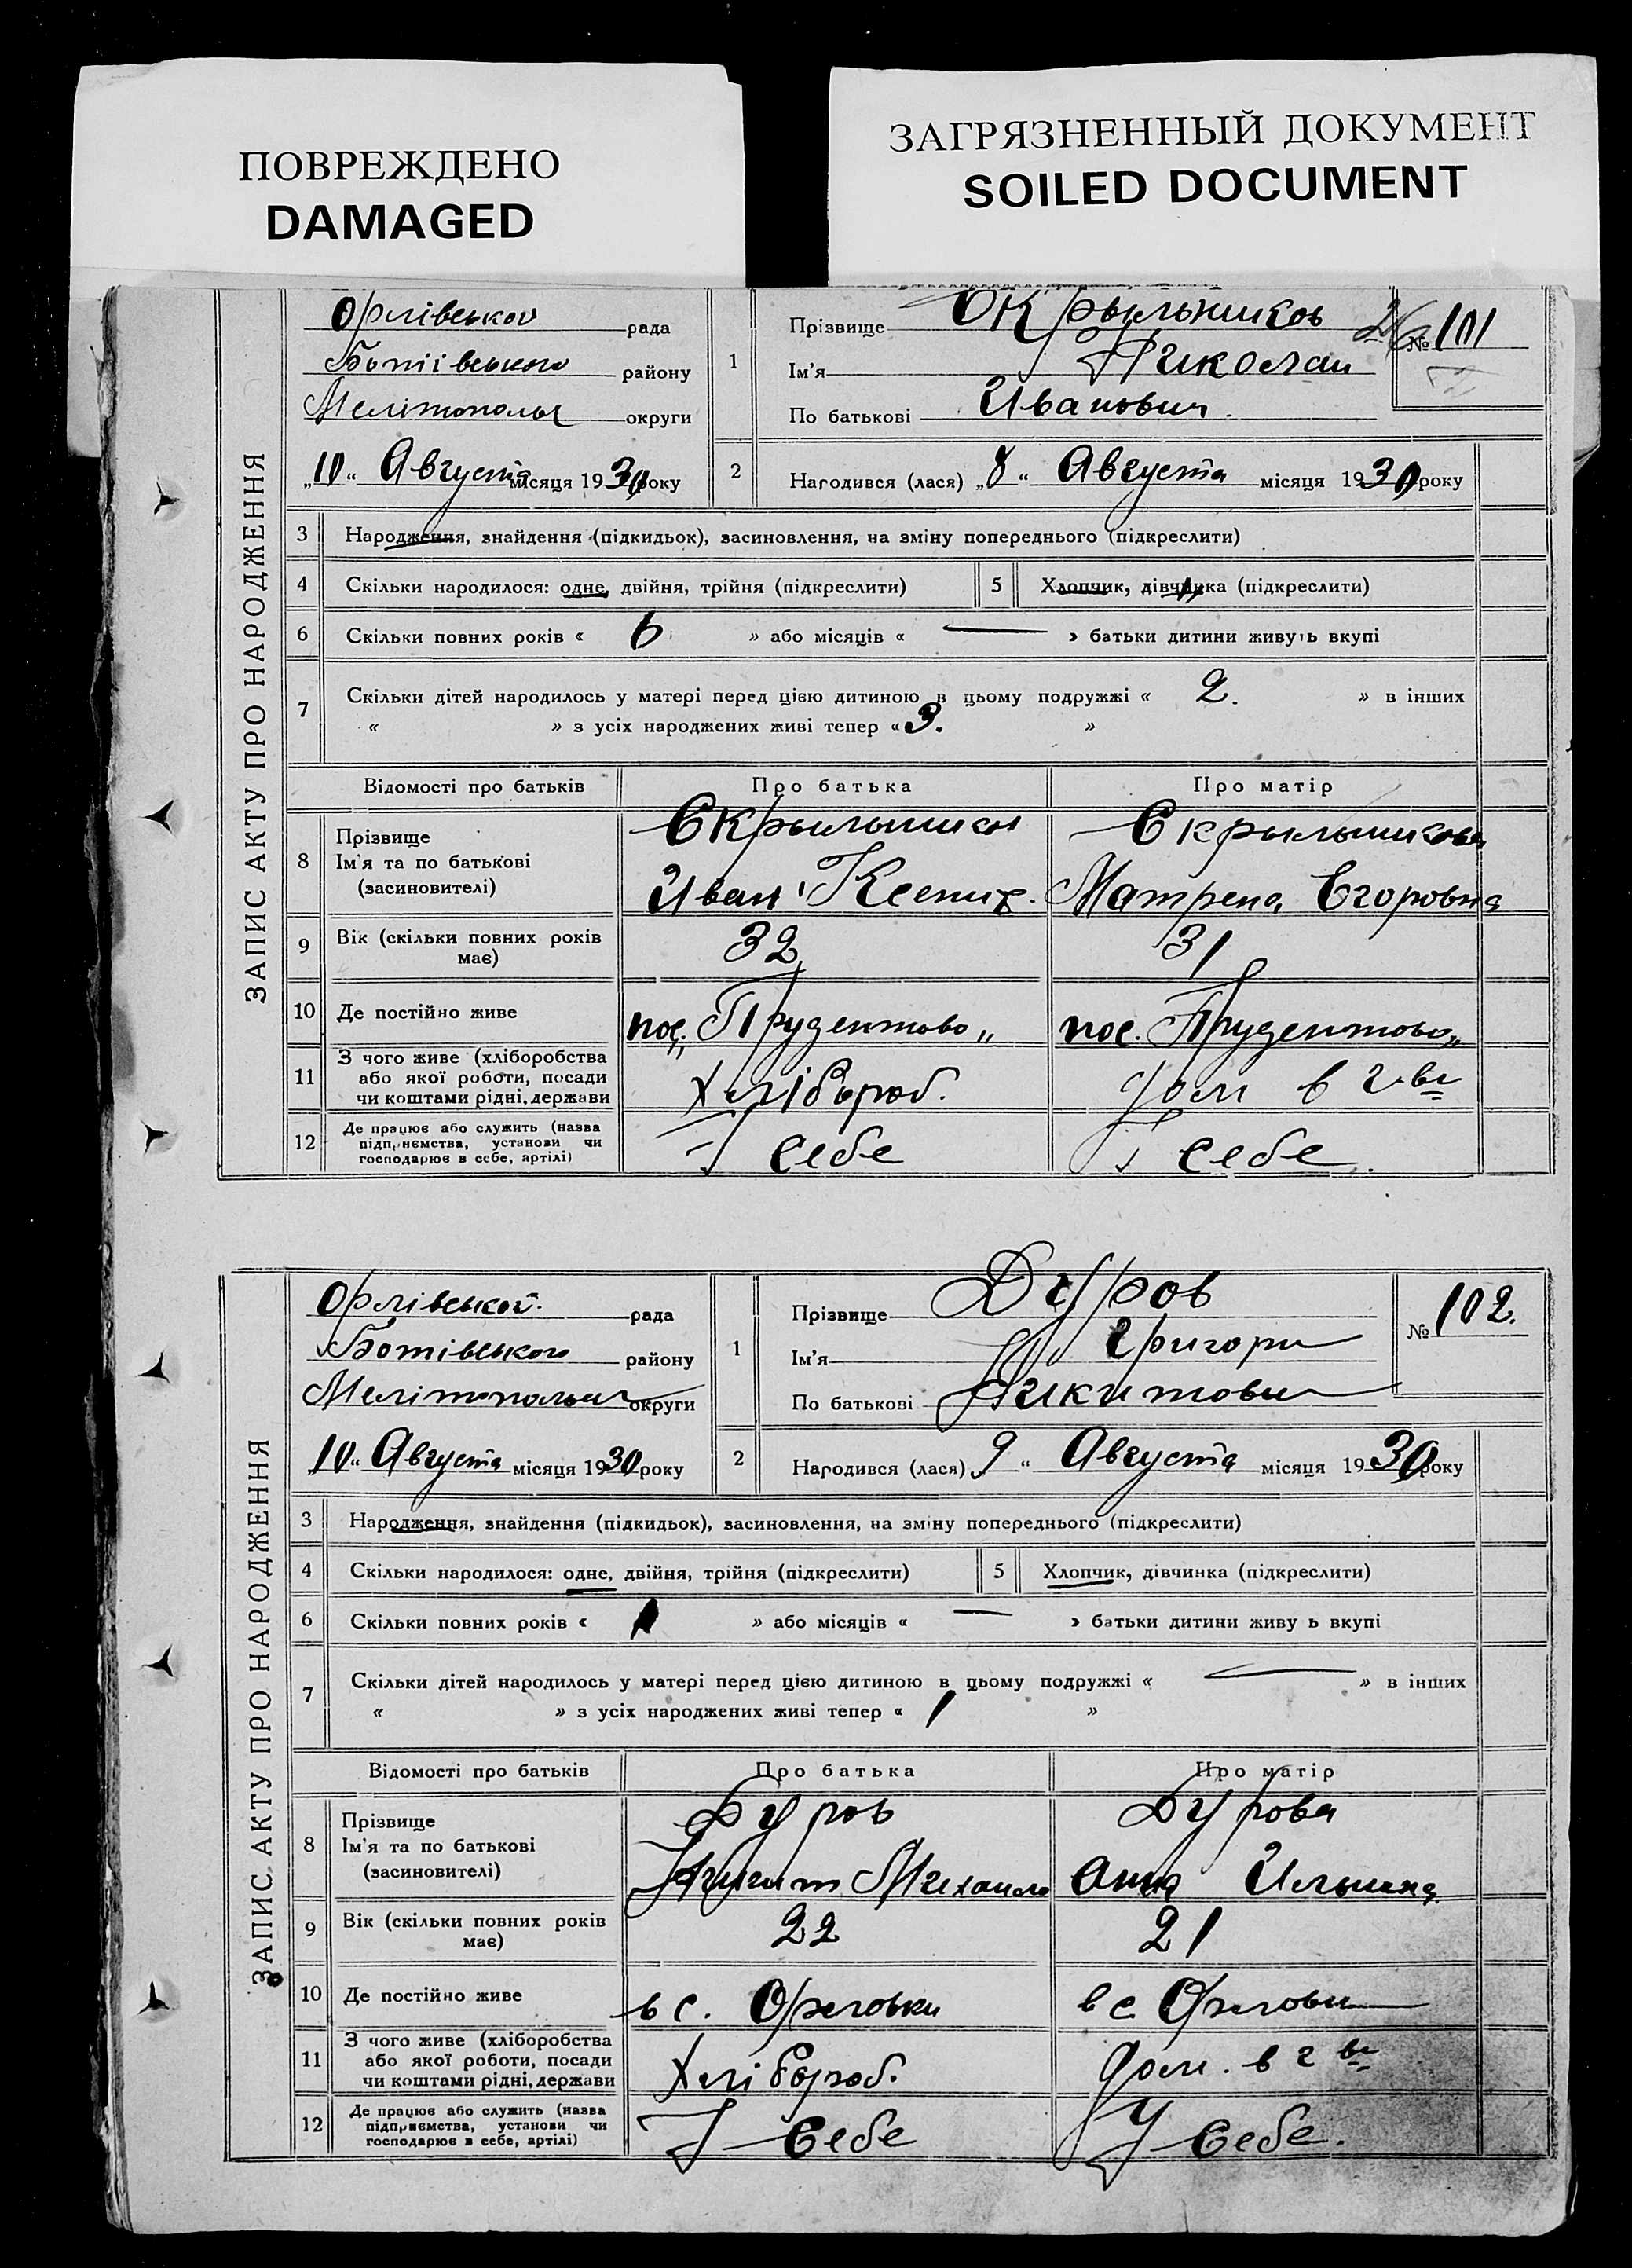 ПОВРЕЖДЕНО
DAMAGED
ЗАГРЯЗНЕННЫЙ ДОКУМЕНТ
SOILED DOCUMENT
ЗАПИС АКТУ ПРО НАРОДЖЕННЯ
Орлівської рада
Ботіївського району
округи
„10“ Августа місяця 1930 року
1
Прізвище Скрыльников
Ім'я Николай
По батькові Иванович
№ 101
2 Народився (лася) „8“ Августа місяця 1930 року
3 Народження, знайдення (підкидьок), засиновлення, на зміну попереднього (підкреслити)
4 Скільки народилося: одне, двійня, трійня (підкреслити) 5 Хлопчик, дівчинка (підкреслити)
6 Скільки повних років « 6 » або місяців « — » батьки дитини живуть вкупі
7 Скільки дітей народилось у матері перед цією дитиною в цьому подружжі « 2. » в інших
« » з усіх народжених живі тепер « 3. »
Відомості про батьків Про батька Про матір
8 Прізвище
Ім'я та по батькові
(засиновителі)
Скрыльников
Иван
Скрыльникова
Матрена Егоровна
9 Вік (скільки повних років має) 32 31
10 Де постійно живе пос. „Прудентово„ пос. Прудентово„
11 З чого живе (хліборобства
або якої роботи, посади
чи коштами рідні, держави
Хлібороб. дом в г-ве
12 Де працює або служить (назва
підприємства, установи чи
господарює в себе, артілі)
У Себе У Себе.
ЗАПИС АКТУ ПРО НАРОДЖЕННЯ
Орлівської рада
Ботівського району
округи
„10“ Августа місяця 1930 року
1
Прізвище Дуров
Ім'я Григори
По батькові Никитови
№ 102.
2 Народився (лася) 9“ Августа місяця 1930 року
3 Народження, знайдення (підкидьок), засиновлення, на зміну попереднього (підкреслити)
4 Скільки народилося: одне, двійня, трійня (підкреслити) 5 Хлопчик, дівчинка (підкреслити)
6 Скільки повних років « » або місяців « — » батьки дитини живу ь вкупі
7 Скільки дітей народилось у матері перед цією дитиною в цьому подружжі « — » в інших
« » з усіх народжених живі тепер « 1 »
Відомості про батьків Про батька Про матір
8 Прізвище
Ім'я та по батькові
(засиновителі)
Дуров
Михайло
Дурова
Анна Ильинна
9 Вік (скільки повних років має) 22 21
10 Де постійно живе в с. Орловки в с Орловки
11 З чого живе (хліборобства
або якої роботи, посади
чи коштами рідні, держави
Хлібороб. дом. в г ве
12 Де працює або служить (назва
підприємства, установи чи
господарює в себе, артілі)
У Себе У Себе.